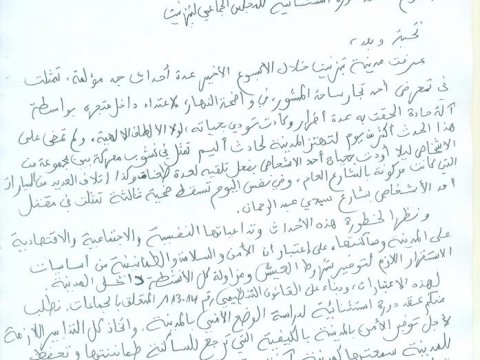 الاستثنائية للمجلس الجماعي لتيزنيت
تحية وبعد،
عرفت مدينة تيزنيت خلال الأسبوع الأخير عدة أحداث جد مؤلمة، تمثلت
في تعرض أحد تجار ساحة المشور وفي واضحة النهار لاعتداء داخل متجره بواسطة
آلة حادة ألحقت به عدة أضرار وكادت تودي بحياته لولا الألطاف الإلهية. ولم تمض على
هذا الحدث أكثر من يوم لتهتز المدينة لحادث أليم تمثل في نشوب معركة بين مجموعة من
الأشخاص ليلا أودت بحياة أحد الأشخاص بفعل تلقيه لعدة طعنات وكذا إتلاف العديد من السيارات
التي كانت مركونة بالشارع العام. وفي نفس اليوم تسقط ضحية ثالثة تمثلت في مقتل
أحد الأشخاص بشارع سيدي عبد الرحمان.
ونظرا لخطورة هذه الأحداث وتداعياتها النفسية والاجتماعية والاقتصادية
على المدينة وساكنتها، على اعتبار أن الأمن والسلامة والطمأنينة من أساسيات
الاستقرار اللازم لتوفير شروط العيش ومزاولة كل الأنشطة داخل المدينة.
لهذه الاعتبارات، وبناء على القانون التنظيمي رقم 113.14 المتعلق بالجماعات، نطلب
منكم عقد دورة استثنائية لدراسة الوضع الأمني بالمدينة. واتخاذ كل التدابير اللازمة
لأجل توفير الأمن بالمدينة بالكيفية التي ترجع للساكنة طمأنينتها وتحفظ
للمدينة سمعتها كمدينة آمنة